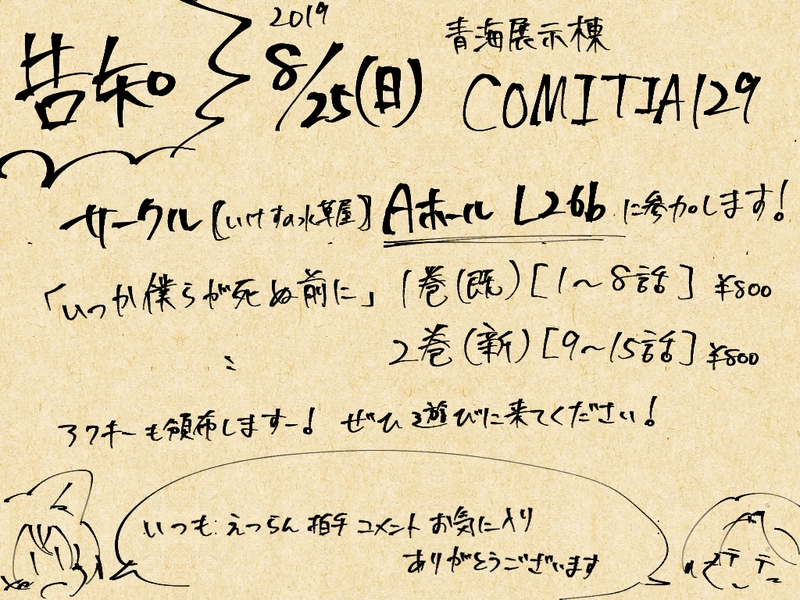 告知
2019
8/25(日)
青海展示棟
COMITIA129
サークル[いけすの水草屋]Aホール L26bに参加します!
「いつか僕らが死ぬ前に」1巻(既)[1~8話]¥800
〃 2巻(新)[9~15話]¥800
アクキーも頒布しますー!ぜひ遊びに来てください!
いつも えつらん 拍手 コメント お気に入り
ありがとうございます